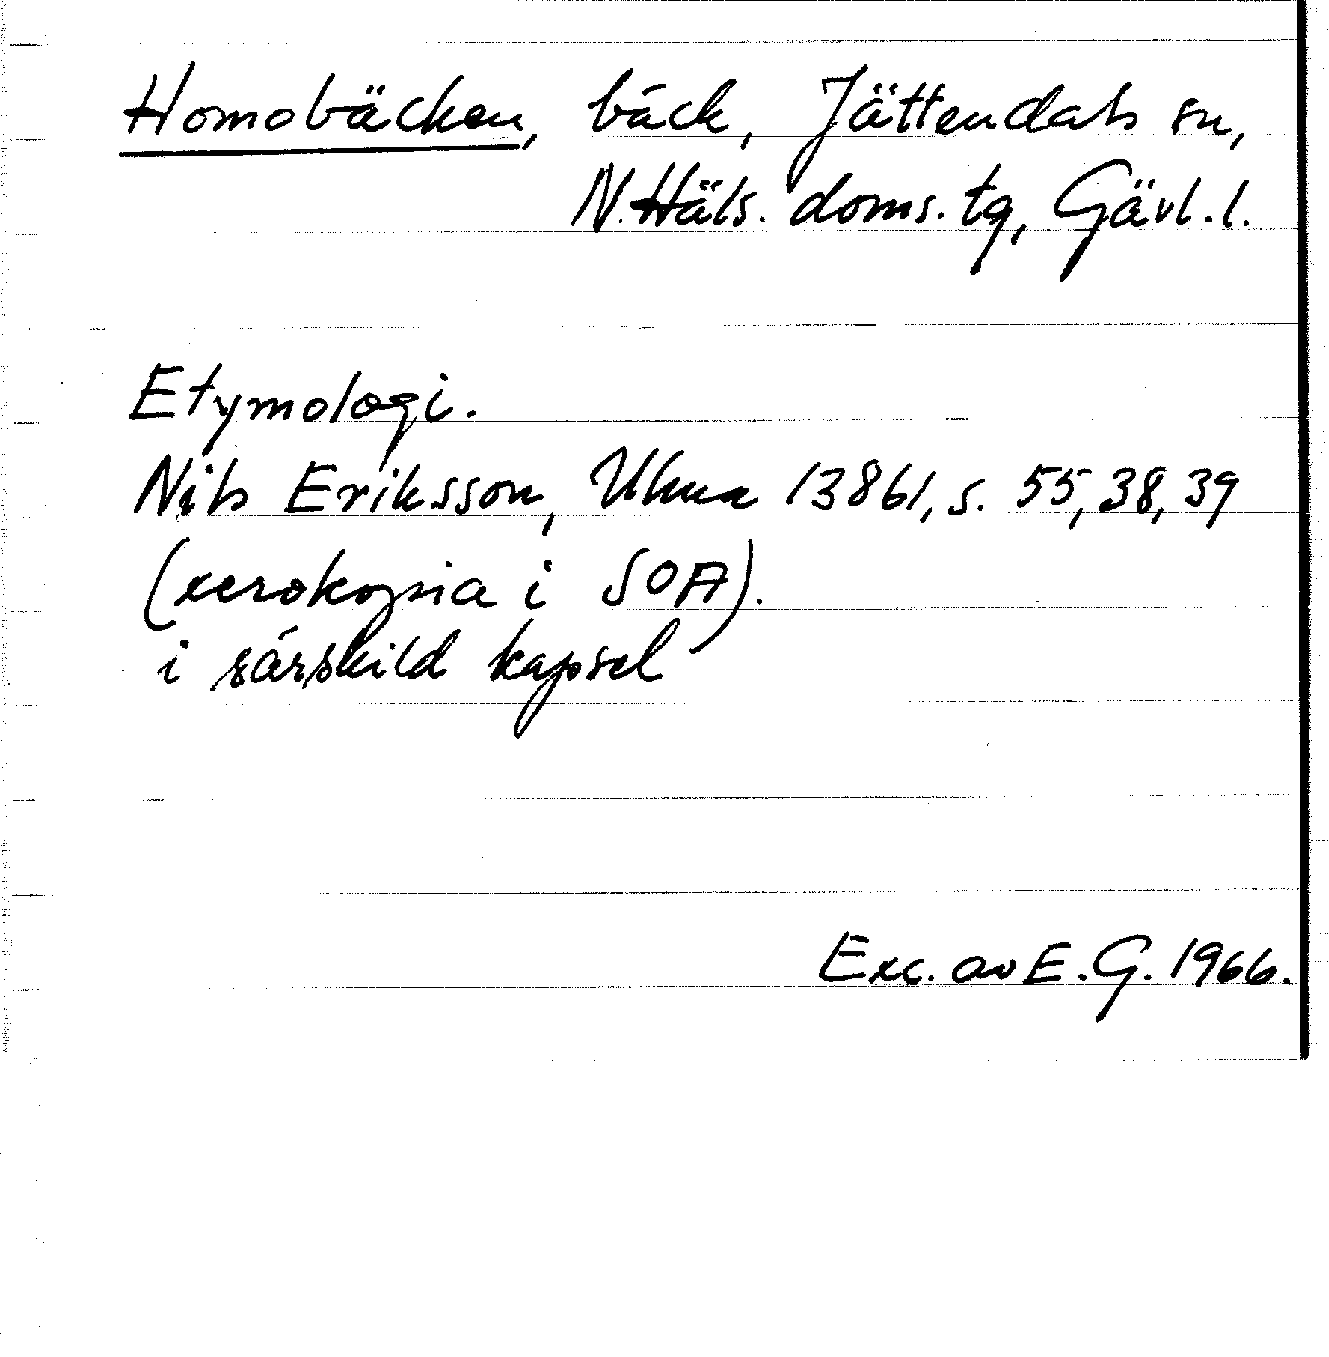 Homobäcken, bäck, Jättendals sn,
N. Häls. doms. tg, Gävl. l.
Etymologi.
Nils Eriksson, Ulma 13861, s. 55, 38, 39
(xerokopia i SOA).
i särskild kapsel
Exc. av E. G. 1966.